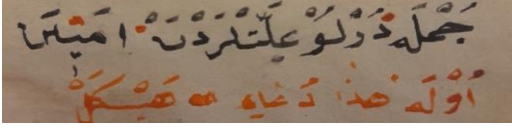 جَمْلَه دُرْلُوْ عِلَّتْلَرْدَنْ اَمِيْن
اُوْلَه هَذَا دُعَاءِ هَيْكَلْ